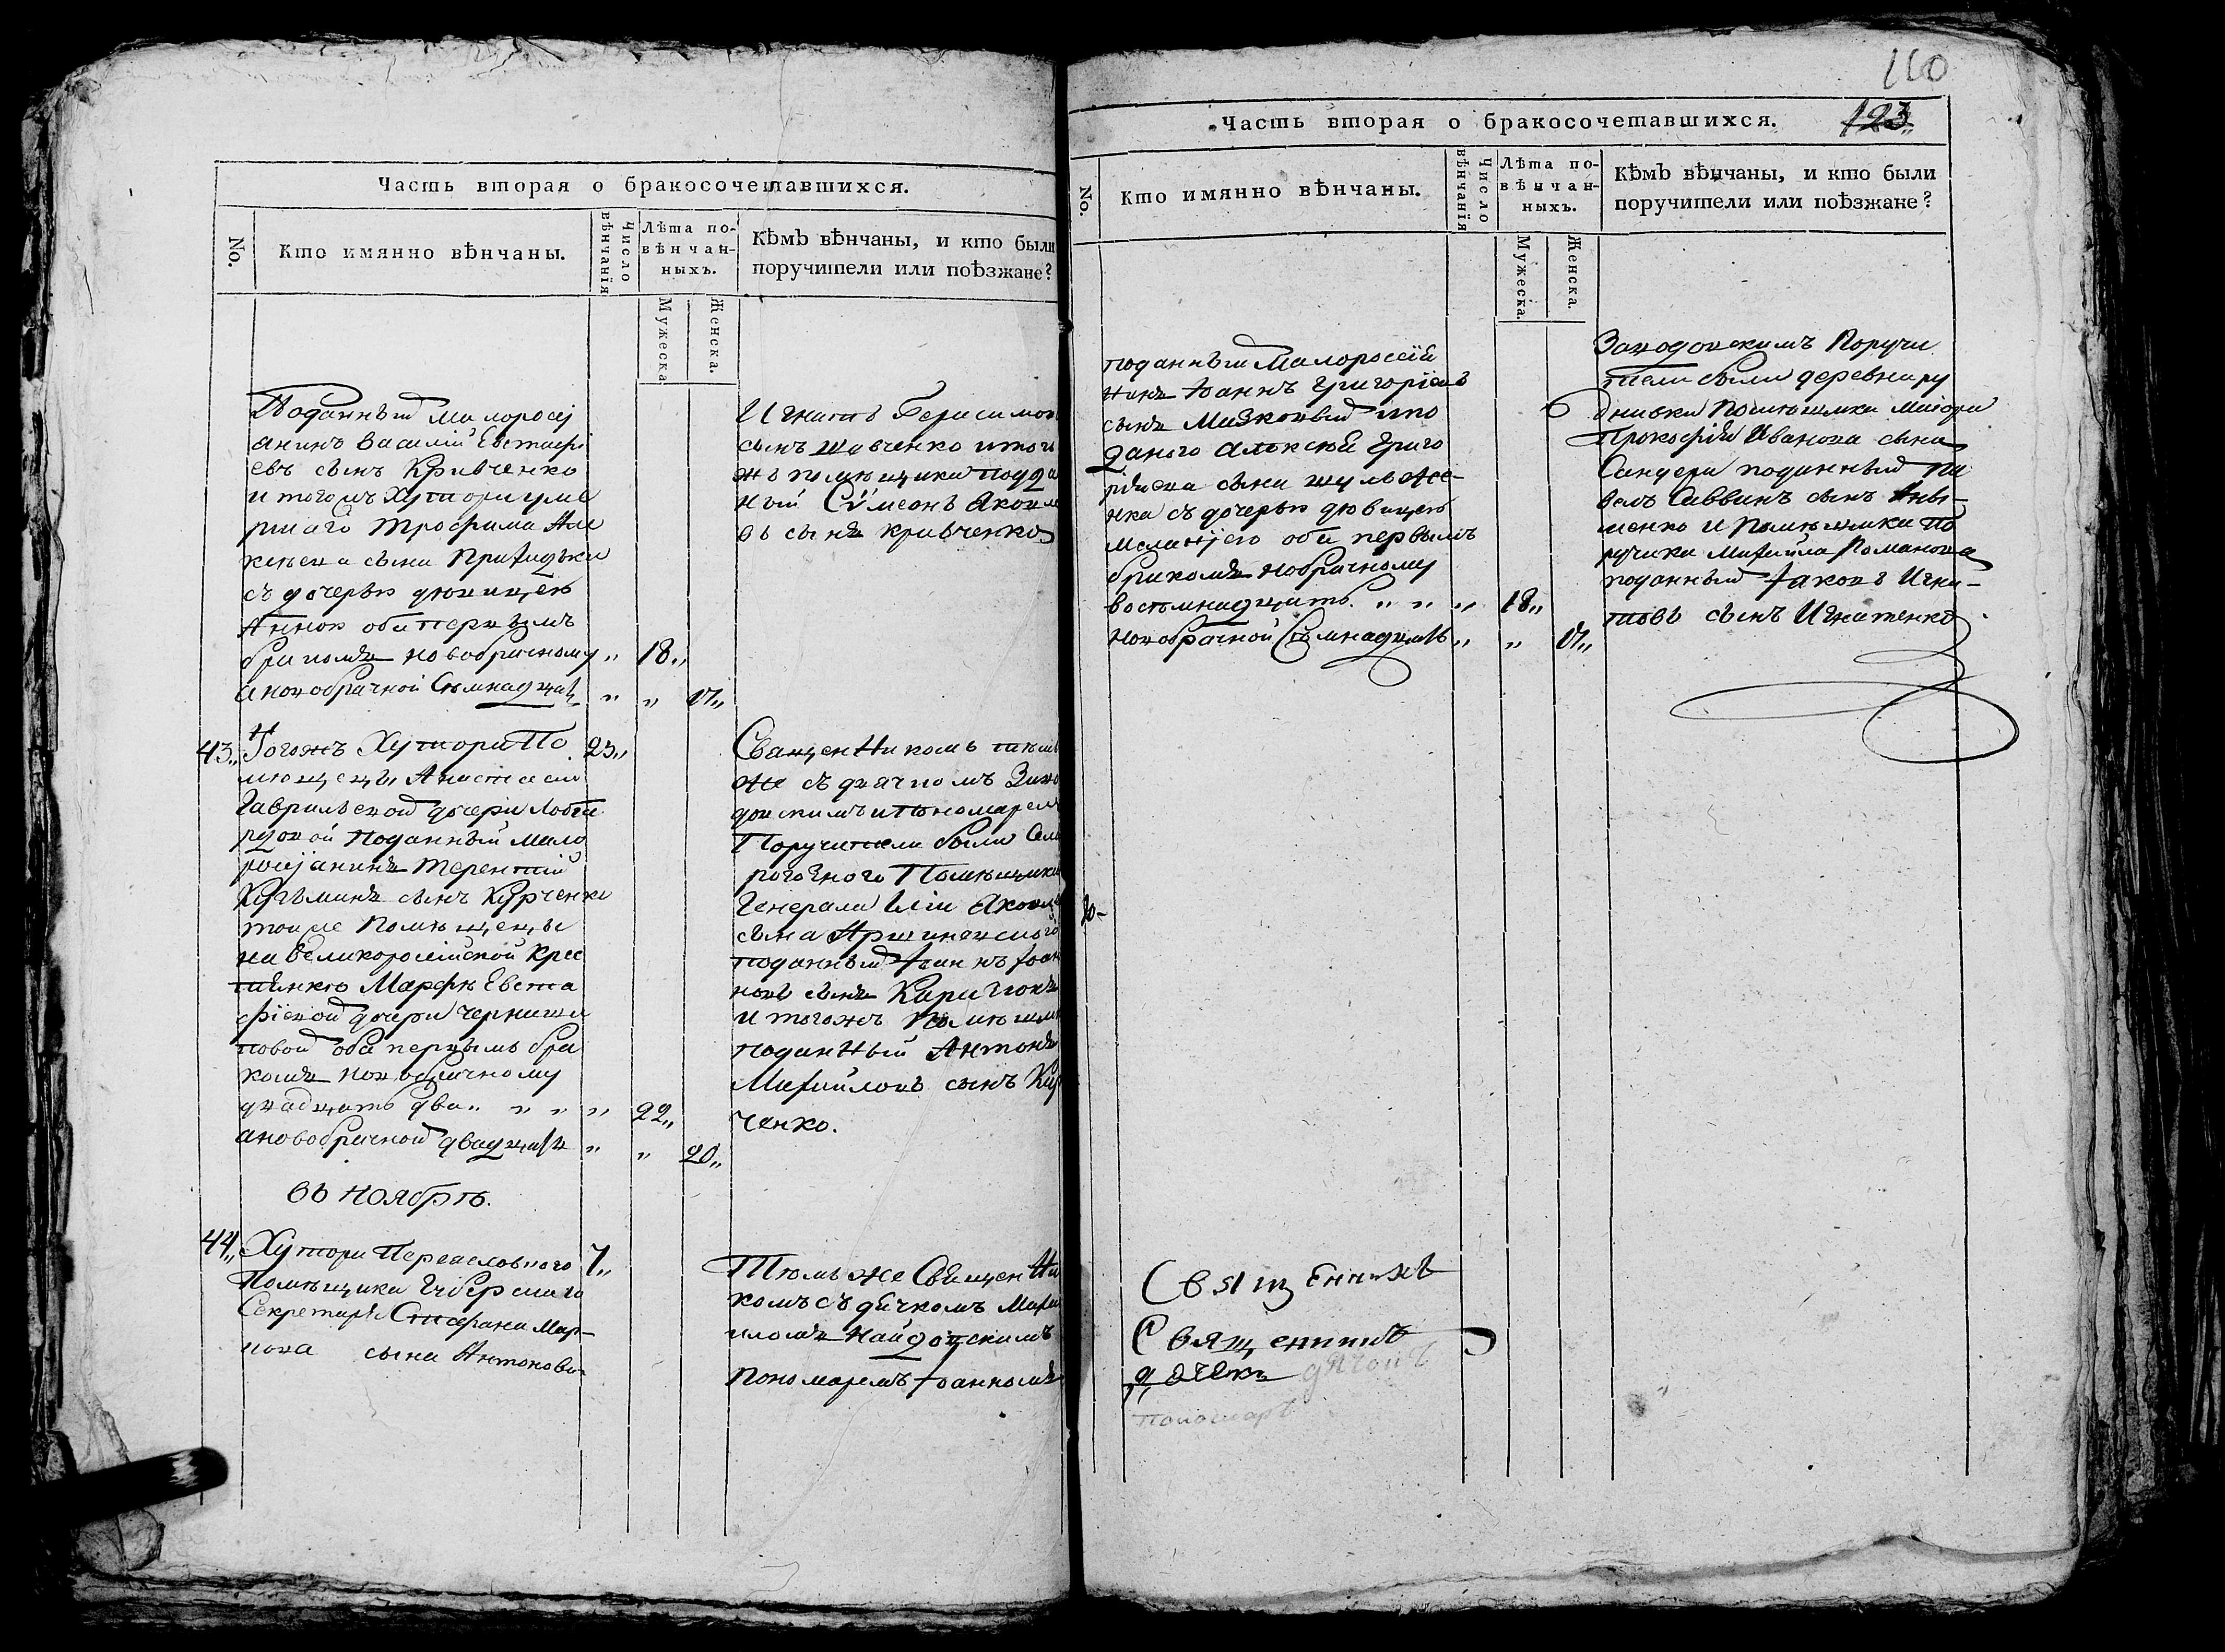 Часть вторая о бракосочетавшихся.
No.
Кто имянно вѣнчаны.
Число вѣнчанія
Лѣта по-
вѣнчан-
ныхъ.
Мужеска
Женска.
Кѣмъ вѣнчаны, и кто были
поручители или поѣзжане?
Поданный малоросі
анинъ Василій Евстафі
евъ сынъ Кривченко
и тогожъ Хутора уме
ршаго Трофима Але
ксѣева сына
съ дочерью дѣвицею
Анною оба первымъ
бракомъ новобрачному „ 18„
а новобрачной Семнадцать „ „ 17„
Игнатъ Герасимов
сынъ Шевченко и того
жъ помѣщика подда
ный Сѵмеонъ Яковле
въ сынъ Кривченко
43„ Тогожъ Хутора По 23„
мѣщицы Анастасіи
Гавриловой дочери
поданный мало
росіянинъ Терентій
Кузьминъ сынъ Курченко
тоиже помѣщицы
на великоросійской крес
тьянкѣ Марфѣ Евста
фіевой дочери
повой оба первымъ бра
комъ новобрачному
двадцать два „ „ „ „ 22„
а новобрачной двадцать „ „ 20„
Священникомъ тѣмъ
же съ дячкомъ Заво
довскимъ и пономаремъ
Поручители были
Помѣщика
Генерала Иліи Яковле
сына Аршиневскаго
поданный Іоаннъ Іоан
новъ сынъ
и тогожъ Помѣщика
поданный Антонъ
Михайловъ сынъ Кур
ченко.
въ Ноябрѣ.
44„ Хутора Переясловского 7„
Помѣщика Губернскаго
Секретаря Стефана Мар-
кова сына Антонова
Тѣмъ же Священни
комъ съ дячкомъ Миха
иломъ
пономаремъ Іоанномъ
110
Часть вторая о бракосочетавшихся. 123„
No.
Кто имянно вѣнчаны.
Число вѣнчанія
Лѣта по-
вѣнчан-
ныхъ.
Мужеска.
Женска.
Кѣмъ вѣнчаны, и кто были
поручители или поѣзжане?
поданный Малороссія
нинъ Іоаннъ Григоріевъ
сынъ
даного Алексѣя Григо
ріева сына
нка съ дочерью дѣвицею
Меланіею оба первымъ
бракомъ новобрачному
восемнадцать „ „ „ 18„
новобрачной Семнадцать „ „ 17„
Заводовскимъ Поручи
тели были деревни ру
дневки Помѣщика Маіора
Прокофія Иванова сына
Сандера поданный Па
велъ Саввинъ сынъ
менко и Помѣщика По
ручика Михайла Романова
поданный Іаковъ Игна-
товъ сынъ Игнатенко
Священникъ
Священникъ
дячокъ дячокъ
Пономаръ